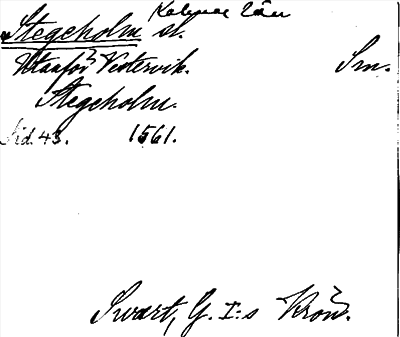 Kalmar län
Stegeholm sl.
Utanför Vestervik. Sm.
Stegeholm.
Sid. 43. 1561.
Swart, G. I:s Krön.